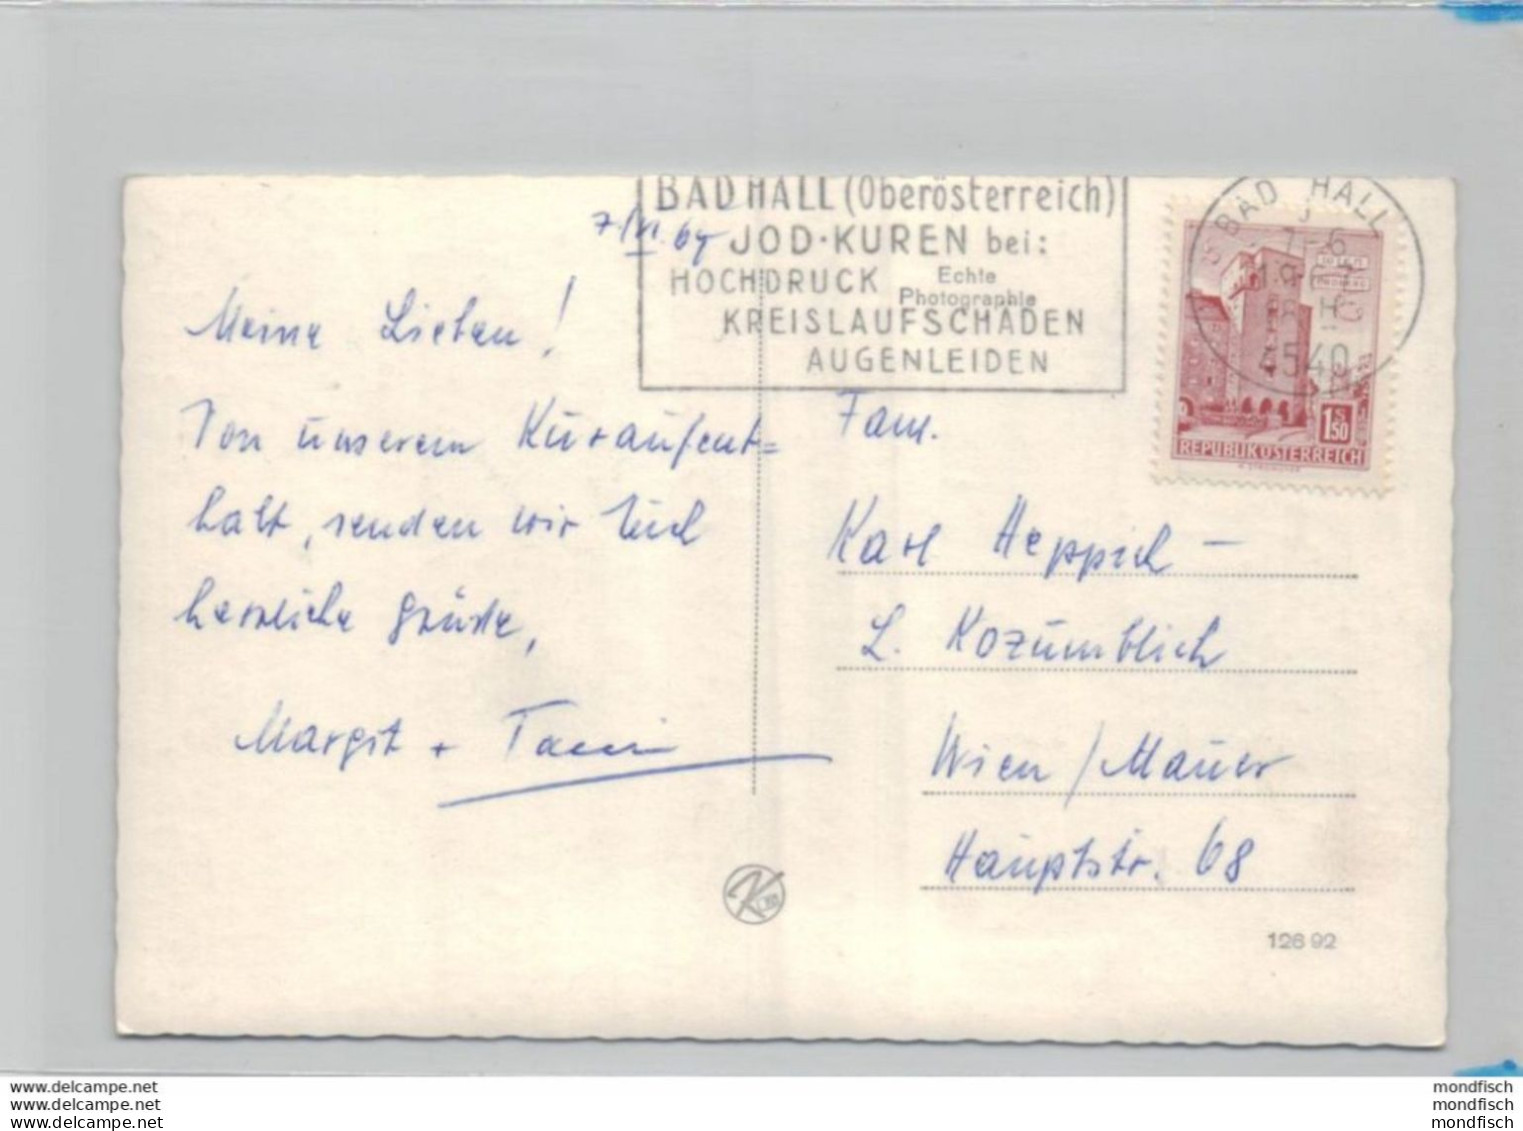 BAD HALL (Oberösterreich)
JOD-KUREN bei:
HOCHDRUCK
KREISLAUFSCHÄDEN
AUGENLEIDEN
Echte
Photographie
BAD HALL
7-6
1967
4540
1S50
REPUBLIK ÖSTERREICH
7/VI. 67
Meine Lieben!
Von unserem Kuraufent=
halt, senden wir Euch
herzliche Grüsse,
Margit +
Fam.
Karl Heppich –
L. Kozumblich
Wien / Mauer
Hauptstr. 68
126 92
www.delcampe.net
www.delcampe.net
www.delcampe.net
mondfisch
mondfisch
mondfisch